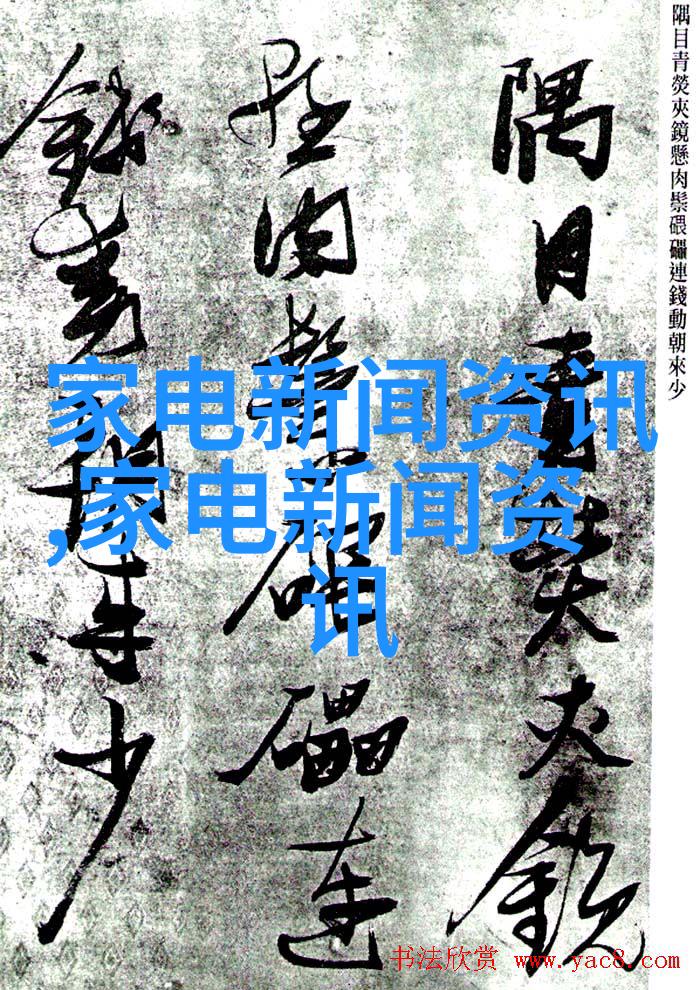 隅目青熒夾鏡懸肉鬃碨礧連錢動朝來少
隅目青熒夾鏡
懸肉鬃碨礧連
錢動朝來少
家电新闻资讯
,家电新闻资
讯
书法欣赏 www.yac8.com